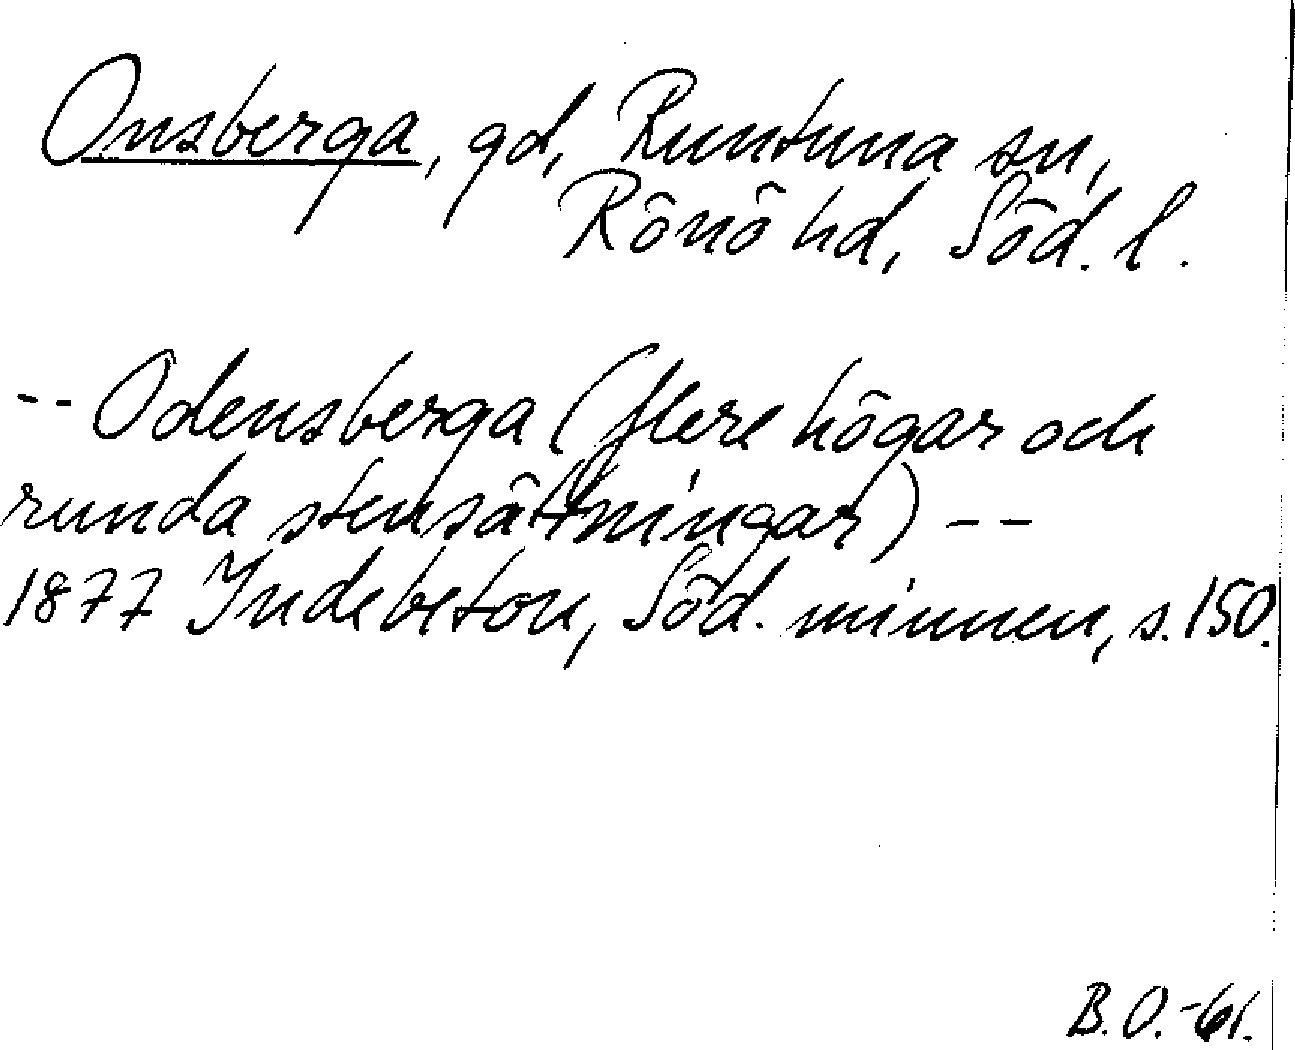 Onsberga, gd, Runtuna sn,
Rönö hd, Söd. l.
-- Odensberga (flere högar och
runda stensättningar) --
1877 Indebetou, Söd. minnen, s. 150.
B.O.-61.